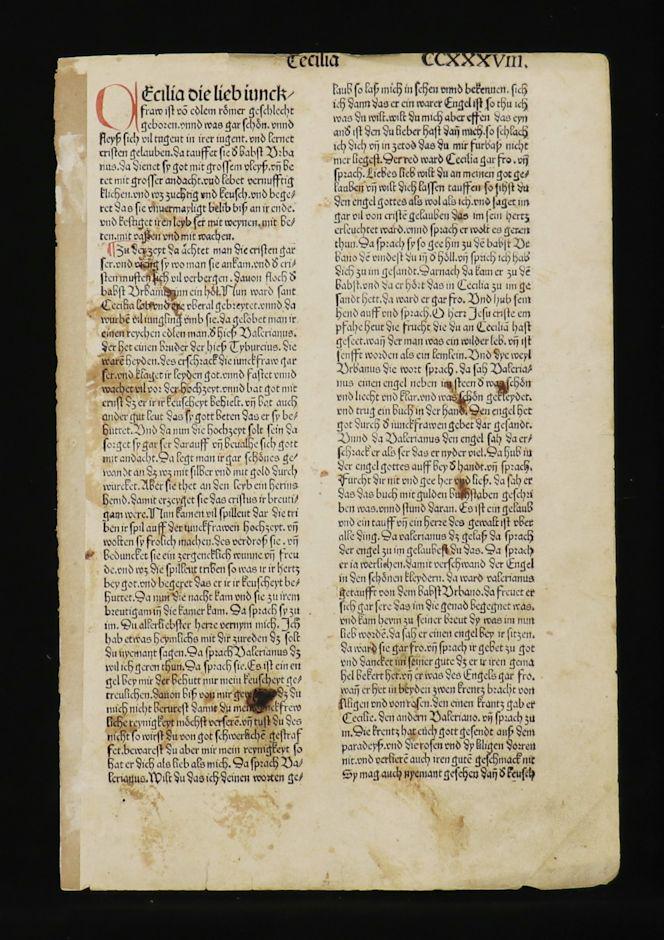 Cecilia CCXXXVIII.
Ecilia die lieb iunck⸗
fraw ist vō edlem römer geschlecht
geboren. vnnd was gar schön. vnnd
fleyß sich vil tugent in irer iugent. vnd lernet
cristen gelauben. da tauffet sie d̄ babst Vrba
nus. da dienet sy got mit grossem vleyß. vn̄ be
tet mit grosser andacht. vnd lebet vernufftig
klichen. vnd wz züchtig vnd keusch. vnd bege⸗
ret das sie vnuermayligt belib biß an ir ende.
vnd kestiget iren leyb ser mit weynen. mit be⸗
ten. mit vasten vnd mit wachen.
Zu der zeyt da ächtet man die cristen gar
ser. vnd sy wo man sie ankam. vnd d̄ cri⸗
sten musten sich vil verbergen. dauon floch d̄
babst Vrbanus in ein höl. Nun ward sant
Cecilia lob vnd ere vberal gebreytet. vnnd da
wurbē vil iungling vmb sie. da gelobet man ir
einen reychen edlen man. d̄ hieß Valerianus.
der het einen bruder der hieß Tyburcius. die
warē heyden. des erschrack die iunckfraw gar
ser. vnd klaget ir leyden got. vnnd fastet vnnd
wachet vil vor der hochzeyt. vnnd bat got mit
ernst dz er ir ir keuscheyt behielt. vn̄ bat auch
ander gut leut das sy gott beten das er sy be⸗
hüttet. Vnd da nun die hochzeyt solt sein da
sorget sy gar ser darauff vn̄ beualhe sich gott
mit andacht. Da legt man ir gar schönes ge⸗
wandt an dz wz mit silber vnd mit gold durch
würcket. Aber sie thet an den leyb ein herins
hemd. damit erzeyget sie das cristus ir breuti⸗
gam were. Nun kamen vil spilleut dar die tri
ben ir spil auff der iunckfrawen hochzeyt. vn̄
wolten sy frolich machen. des verdroß sie. vn̄
beduncket sie ein zergencklich wunne vn̄ freu
de. vnd wz die spilleut triben so was ir ir hertz
bey got. vnd begeret das er ir ir keuscheyt be⸗
hüttet. Da nun die nacht kam vnd sie zu irem
breutigam in̄ die kamer kam. Da sprach sy zu
im. Du allerliebster herre vernym mich. Ich
hab etwas heymlichs mit dir zureden dz solt
du nyemant sagen. Da sprach Valerianus dz
wil ich geren thun. Da sprach sie. Es ist ein en
gel bey mir der behütt mir mein keuscheyt ge⸗
treulichen. dauon biß von mir dz du
mich nicht berürest damit du mein iunckfrew
liche reynigkeyt möchst verserē. vn̄ tust du des
nicht so wirst du von got schwerlichē gestraf
fet. bewarest du aber mir mein reynigkeyt so
hat er dich als lieb als mich. Da sprach Va⸗
lerianus. Wilt du das ich deinen worten ge⸗
laub so laß mich in sehen vnnd bekennen. sich
ich dann das er ein warer Engel ist so thu ich
was du wilt. wilt du mich aber effen das eyn
and ist den du lieber hast dan̄ mich. so schlach
ich dich vn̄ in zetod das du mir furbaß nicht
mer liegest. Der red ward Cecilia gar fro. vn̄
sprach. Liebes lieb wilt du an meinen got ge⸗
lauben vn̄ wilt dich lassen tauffen so sihst du
den engel gottes als wol als ich. vnd saget im
gar vil von cristē gelauben das im sein hertz
erleuchtet ward. vnnd sprach er wolt es geren
thun. Da sprach sy so gee hin zu dē babst Vr
bano dē vindest du in̄ d̄ höll. vn̄ sprich ich hab
dich zu im gesandt. Darnach da kam er zu dē
babst. vnd da er hört das in Cecilia zu im ge
sandt hett. da ward er gar fro. Vnd hub sein
hend auff vnd sprach. O herr Jesu criste em
pfahe heut die frucht die du an Cecilia hast
geseet. wan̄ der man was ein wilder leb. vn̄ ist
senfft worden als ein lemlein. Vnd dye weyl
Vrbanus die wort sprach. da sah Valeria⸗
nus einen engel neben in steen d̄ was schön
vnd liecht vnd klar. vnd was schön gekleydet.
vnd trug ein buch in der hand. Den engel het
got durch d̄ iunckfrawen gebet dar gesandt.
Vnnd da Valerianus den engel sah da er⸗
schrack er als ser das er nyder viel. Da hub in
der engel gottes auff bey d̄ handt. vn̄ sprach.
Furcht dir nit vnd gee her vnd ließ. da sah er
das das buch mit gulden buchstaben geschri
ben was. vnd stund daran. Es ist ein gelaub
vnd ein tauff vn̄ ein herre des gewalt ist vber
alle ding. Da valerianus dz gelaß da sprach
der engel zu im gelaubest du das. Da sprach
er ia werlichen. damit verschwand der Engel
in den schönen kleydern. da ward valerianus
getaufft von dem babst Vrbano. da freuet er
sich gar sere das im die genad begegnet was.
vnd kam heym zu seiner breut dy was im nun
lieb wordē. da sah er einen engel bey ir sitzen.
da ward sie gar fro. vn̄ sprach ir gebet zu got
vnd dancket im seiner gute dz er ir iren gema
hel bekert het. vn̄ er was des Engels gar fro.
wan̄ er het in beyden zwen krentz bracht von
liligen vnd von rosen. den einen krantz gab er
Cecilie. den andern Valeriano. vn̄ sprach zu
im. Die krentz hat euch gott gesendt auß dem
paradeyß. vnd die rosen vnd dy liligen dorren
nit. vnd verlierē auch iren gutē geschmack nit
Sy mag auch nyemant gesehen dan̄ d̄ keusch